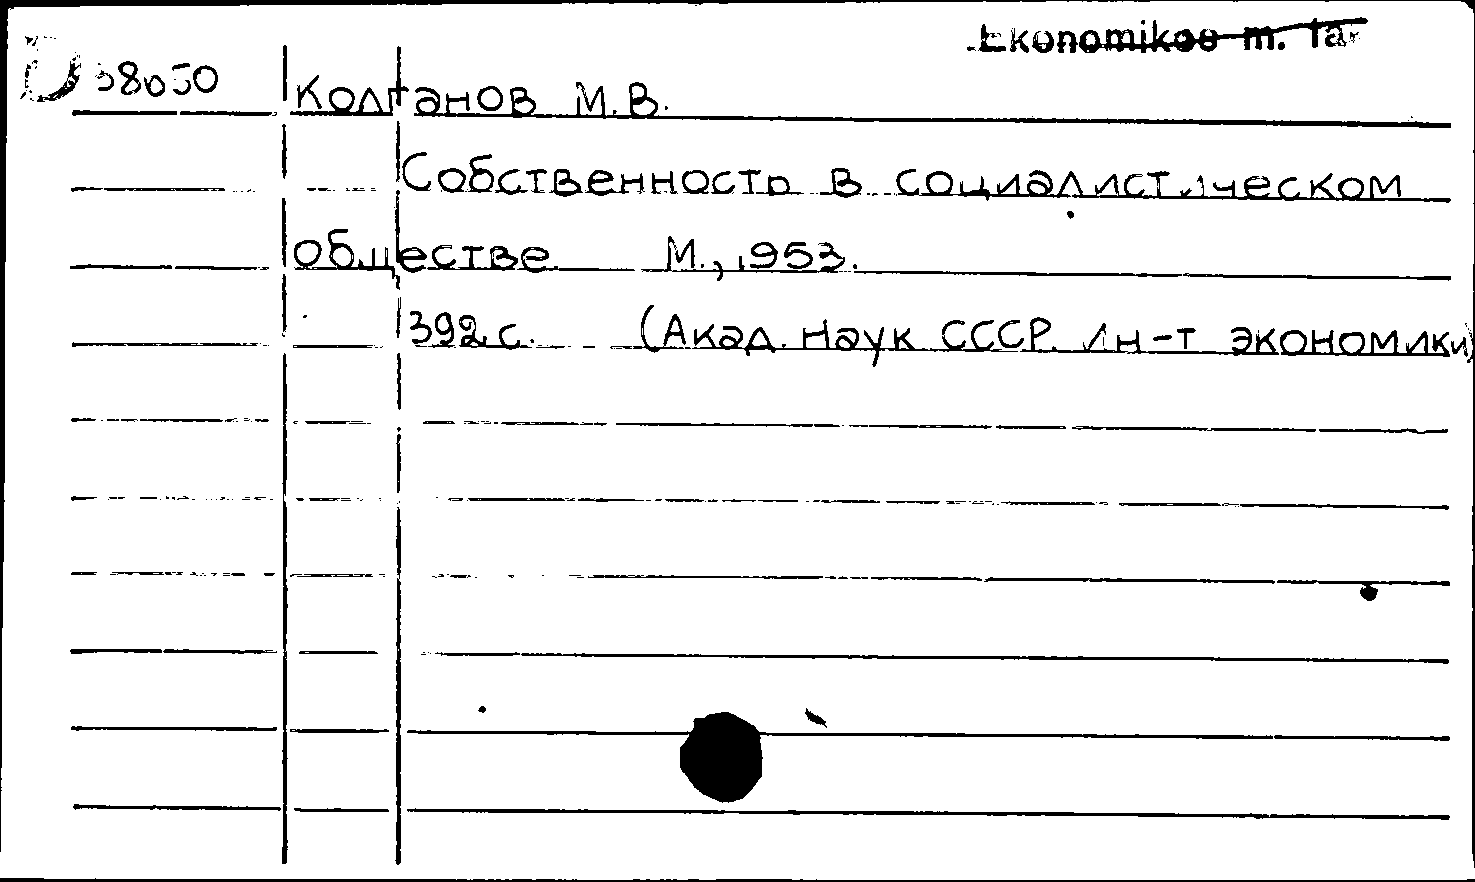 Ekonomikos m.
Колганов М.В.
Собственность в социалистическом
обществе М., 1953.
392 с. (Акад. наук СССР. Ин-т экономики)